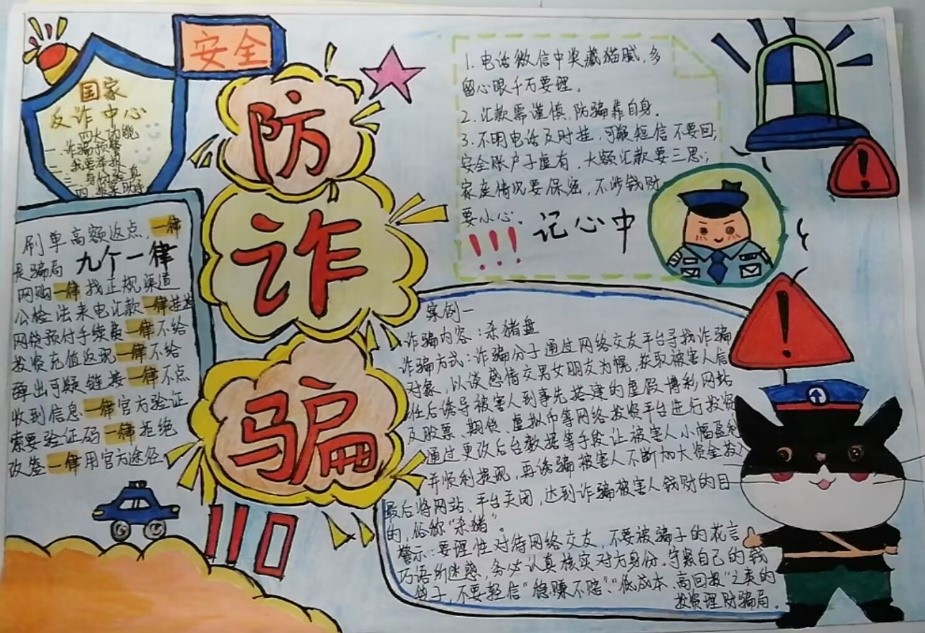 安全
国家
反诈中心
四大功能
一、诈骗预警
二、我要举报
三、身份核真
防
诈
骗
1. 电话微信中奖藏猫腻,多
留心眼千万要理。
2. 汇款需谨慎,防骗靠自身。
3. 不明电话及时挂,可疑短信不要回;
安全账户子虚有,大额汇款要三思;
家庭情况要保密,不涉钱财
要小心。
!!! 记心中
刷单高额返点,一律
是骗局 九个一律
网购一律找正规渠道
公检法来电汇款一律
网贷预付手续费一律不给
投资充值返现一律不给
弹出可疑链接一律不点
收到信息一律官方验证
索要验证码一律拒绝
改签一律用官方途径
110
案例一
诈骗内容:杀猪盘
诈骗方式:诈骗分子通过网络交友平台寻找诈骗
对象,以谈感情交男女朋友为幌,获取被害人信
任后诱导被害人到事先搭建的虚假博彩网站
及股票、期货、虚拟币等网络投资平台进行投资
通过更改后台数据等手段,让被害人小幅盈利
并顺利提现,再诱骗被害人不断加大资金投入
最后将网站、平台关闭,达到诈骗被害人钱财的目
的,俗称“杀猪”。
警示:要理性对待网络交友,不要被骗子的花言
巧语所迷惑,务必认真核实对方身份,守紧自己的钱
袋子,不要轻信“稳赚不赔”、“低成本、高回报”之类的
投资理财骗局。